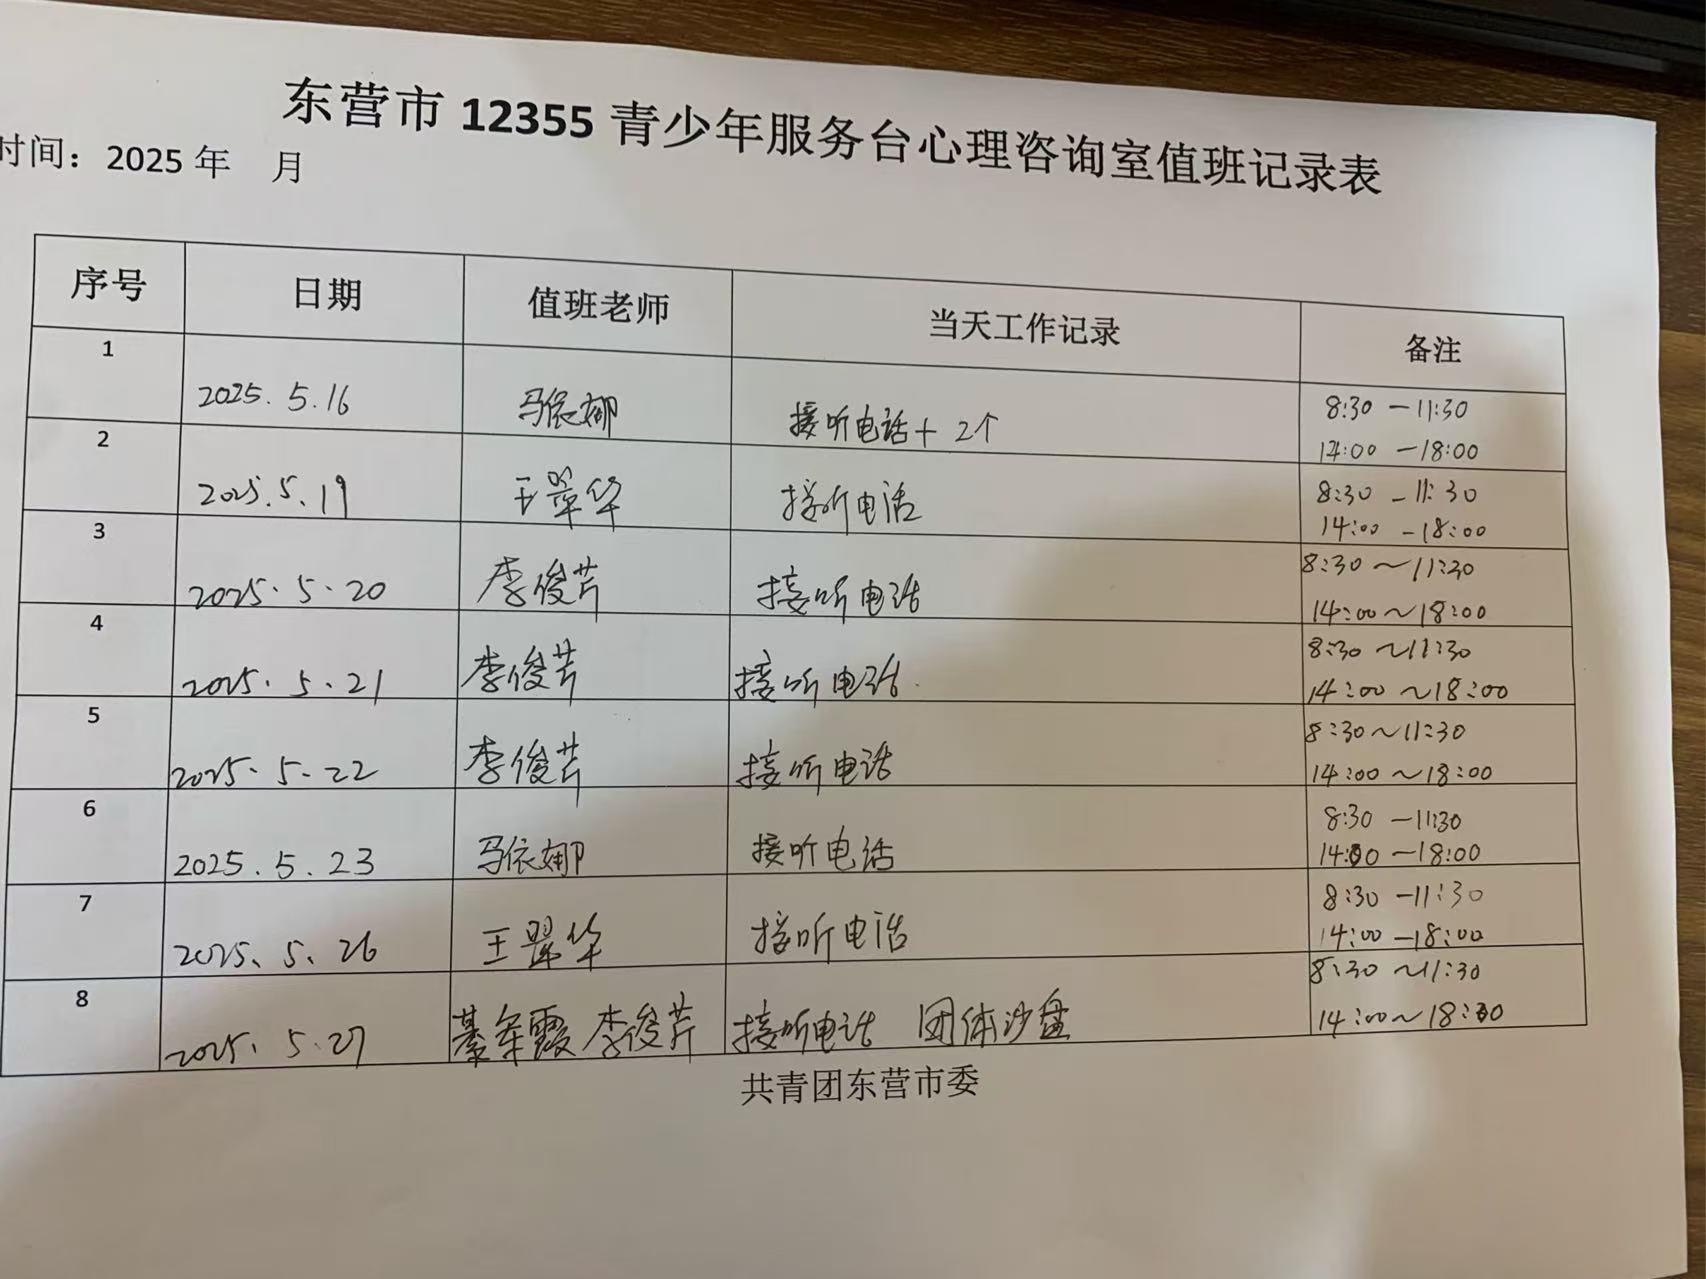 东营市 12355 青少年服务台心理咨询室值班记录表
时间：2025 年 月
序号 日期 值班老师 当天工作记录 备注
1 2025.5.16 马依娜 接听电话+2个 8:30 —11:30
14:00 —18:00
2 2025.5.19 王翠华 接听电话 8:30 —11:30
14:00 —18:00
3 2025.5.20 李俊芹 接听电话 8:30～11:30
14:00～18:00
4 2025.5.21 李俊芹 接听电话. 8:30～11:30
14:00～18:00
5 2025.5.22 李俊芹 接听电话 8:30～11:30
14:00～18:00
6 2025.5.23 马依娜 接听电话 8:30 —11:30
14:00 —18:00
7 2025.5.26 王翠华 接听电话 8:30 —11:30
14:00 —18:00
8 2025.5.27 李俊芹 接听电话 团体沙盘 8:30～11:30
14:00～18:00
共青团东营市委